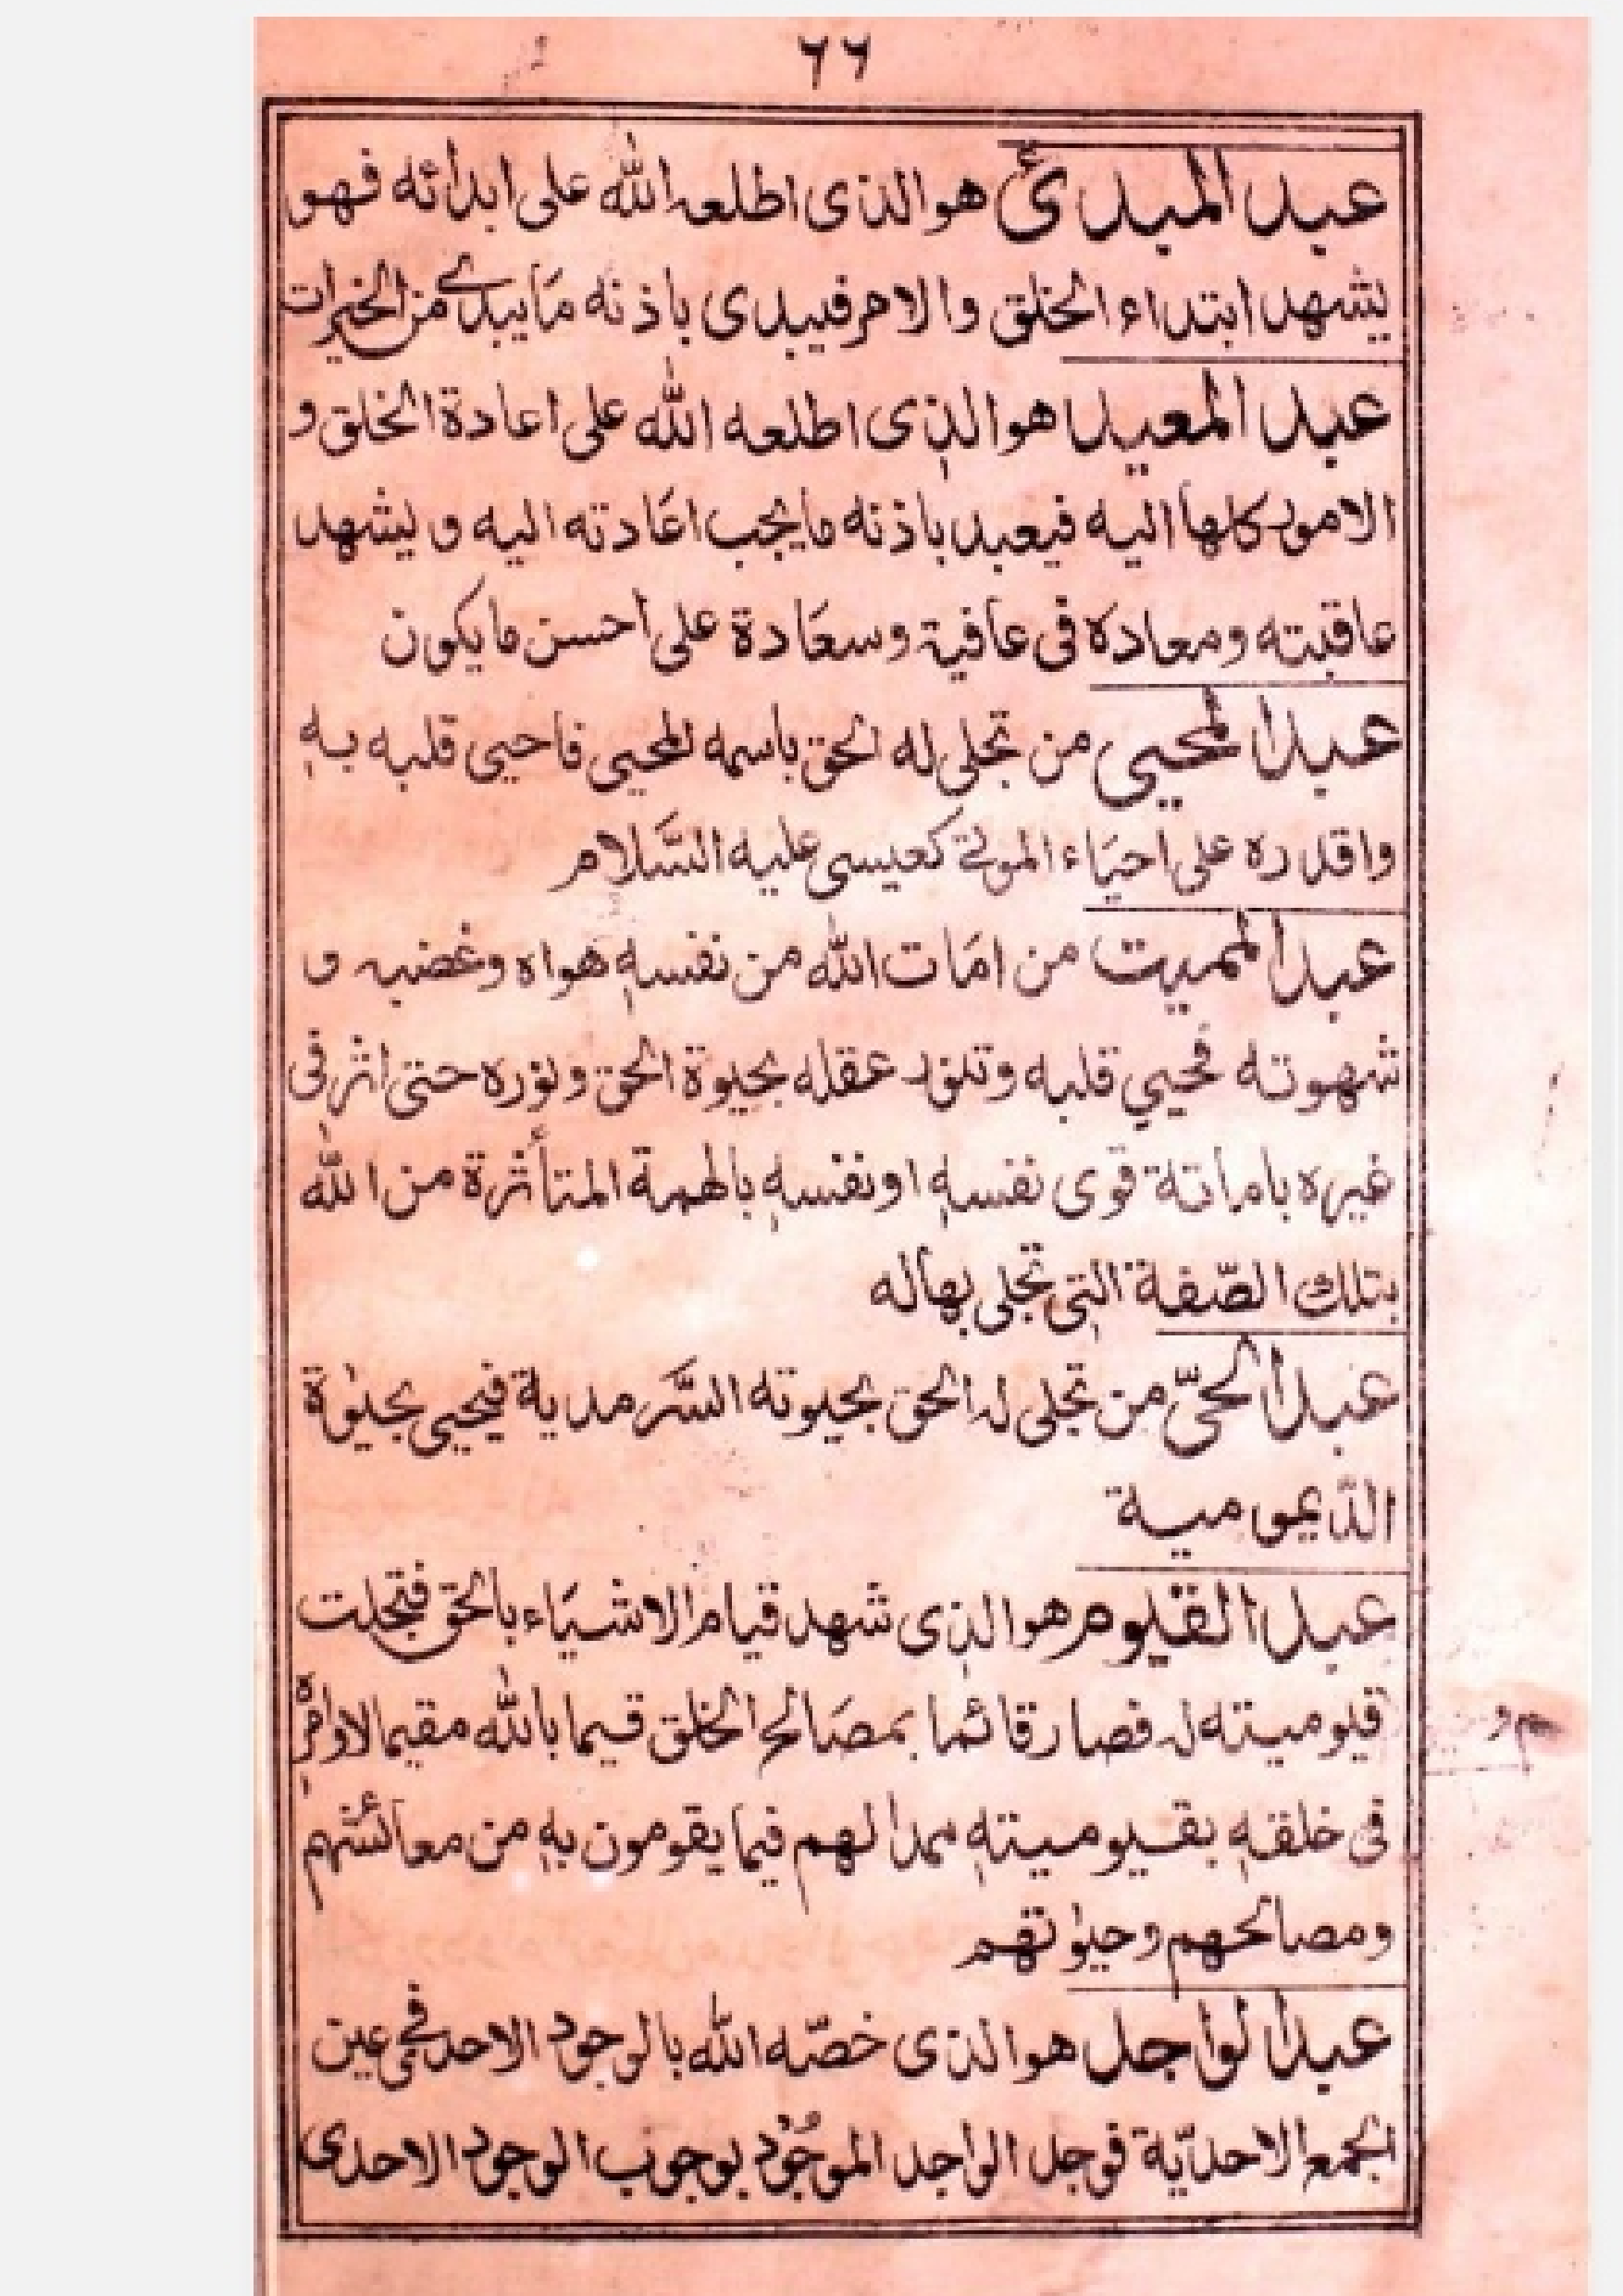 ٦٦
عبد المبدئ هو الذى اطلعه الله على ابدائه فهو
يشهد ابتداء الخلق والامر فيبدى باذنه ما يبدے من الخيرات
عبد المعيد هو الذى اطلعه الله على اعادة الخلق و
الامور كلها اليه فيعبد باذنه ما يجب اعادته اليه و يشهد
عاقبته ومعاده فى عافية وسعادة على احسن ما يكون
عبد المحيى من تجلى له الحق باسمه المحيى فاحيى قلبه به
واقدره على احياء الموتے كعيسى عليه السّلام
عبد المميت من امات الله من نفسه هواه وغضبه و
شهوته فحيي قلبه وتنور عقله بحيوة الحق ونوره حتى اثر فى
غيره باماتة قوى نفسه او نفسه بالهمة المتأثرة من اللّٰه
بتلك الصّفة التى تجلى بها له
عبد الحىّ من تجلى له الحق بحيوته السَّرمدية فيحيى بحيٰوة
الدّيمومية
عبد القيوم هو الذى شهد قيام الاشياء بالحق فتجلت
قيوميته له فصار قائما بمصالح الخلق قيما بالله مقيما لاوامره
فى خلقه بقيوميته ممدا لهم فيما يقومون به من معائشهم
ومصالحهم وحيٰوتهم
عبد الواجد هو الذى خصّه الله بالوجود الاحد فى عين
الجمع الاحديّة فوجد الواجد الموجُود بوجوب الوجود الاحدى